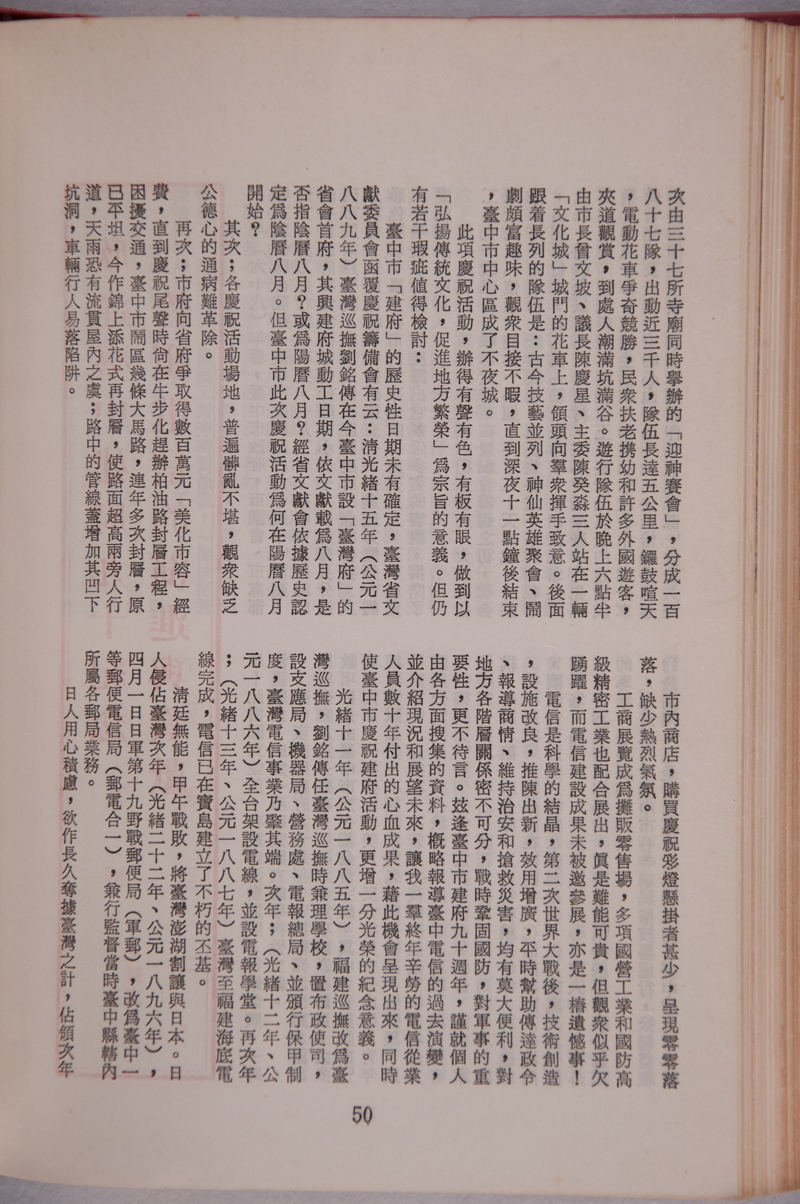 次由三十七所寺廟同時舉辦的「迎神賽會」，分成一百
八十七隊，出動近三千人，隊伍長達五公里，鑼鼓喧天
，電動花車爭奇競勝，民衆扶老携幼和許多外國遊客，
夾道觀賞，到處人潮滿坑滿谷。遊行隊伍於晚上六點半
由市長曾文坡、議長陳慶星、主委陳癸淼三人站在一輛
「文化城」城門的花車上，領頭向羣衆揮手致意。後面
跟着長列的隊伍是：古今技藝並列、神仙英雄聚會、鬧
劇頗富趣味，觀衆目接不暇，直到深夜十一點鐘後結束
，臺中市中心區成了不夜城。
此項慶祝活動，辦得有聲有色，有板有眼，做到以
「弘揚傳統文化，促進地方繁榮」爲宗旨的意義。但仍
有若干瑕疵值得檢討：
臺中市「建府」的歷史性日期未有確定，臺灣省文
獻委員會函覆慶祝籌備會有云：淸光緖十五年（公元一
八八九年）臺灣巡撫劉銘傳在今臺中市設「臺灣府」的
省會首府，其興建府城動工日期，依文獻載爲八月，是
否指陰曆八月？或爲陽曆八月？經省文獻會依據歷史認
定爲陰曆八月。但臺中市此次慶祝活動爲何在陽曆八月
開始？
其次；各慶祝活動場地，普遍髒亂不堪，觀衆缺乏
公德心的通病難革除。
再次；市府向省府爭取得數百萬元「美化市容」經
費，直到慶祝尾聲時尙在牛步化趕辦柏油路封層工程，
困擾交通，臺中市鬧區幾條大馬路，連年多次封層，原
已平坦，今作錦上添花式再封層，使路面超高兩旁人行
道，天雨恐有流貫屋內之虞；路中的管線蓋增加其凹下
坑洞，車輛行人易落陷阱。
市內商店，購買慶祝彩燈懸掛者甚少，呈現零零落
落，缺少熱烈氣氛。
工商展覽成爲攤販零售場，多項國營工業和國防高
級精密工業也配合展出，眞是難能可貴，但觀衆似乎欠
踴躍，而電信建設成果未被邀參展，亦是一樁遺憾事！
電信是科學的結晶，第二次世界大戰後，技術創造
，設施改良，推陳出新，效用增廣，平時幫助傳達政令
、報導商情、維持治安和搶救災害，均有莫大便利，對
地方各階層關係密不可分，戰時鞏固國防，對軍事的重
要性，更不待言。玆逢臺中市建府九十週年，謹就個人
由各方面搜集的資料，槪略報導臺中電信的過去演變，
並介紹現況和展望未來，讓我一羣終年辛勞的電信從業
人員數十年付出的心血成果，藉此機會呈現出來，同時
使臺中市慶祝建府活動，更增一分光榮的紀念意義。
光緖十一年（公元一八八五年），福建巡撫改爲臺
灣巡撫，劉銘傳任臺灣巡撫時兼理學校，置布政使司，
設支應局、機器局、營務處、電報總局、並頒行保甲制
度，臺灣電信事業乃肇其端。次年；（光緖十二年、公
元一八八六年）全台架設電線，並設電報學堂。再次年
；（光緖十三年、公元一八八七年）臺灣至福建海底電
線完成，電信已在寶島建立了不朽的丕基。
淸廷無能，甲午戰敗，將臺灣澎湖割讓與日本。日
人侵佔臺灣亥年（光緖二十二年、公元一八九六年），
四月一日日軍第十九野戰郵便局（軍郵），改爲臺中一
等郵便電信局（郵電合一），兼行監督當時臺中縣轄內
所屬各郵局業務。
日人用心積慮，欲作長久奪據臺灣之計，佔領次年
50